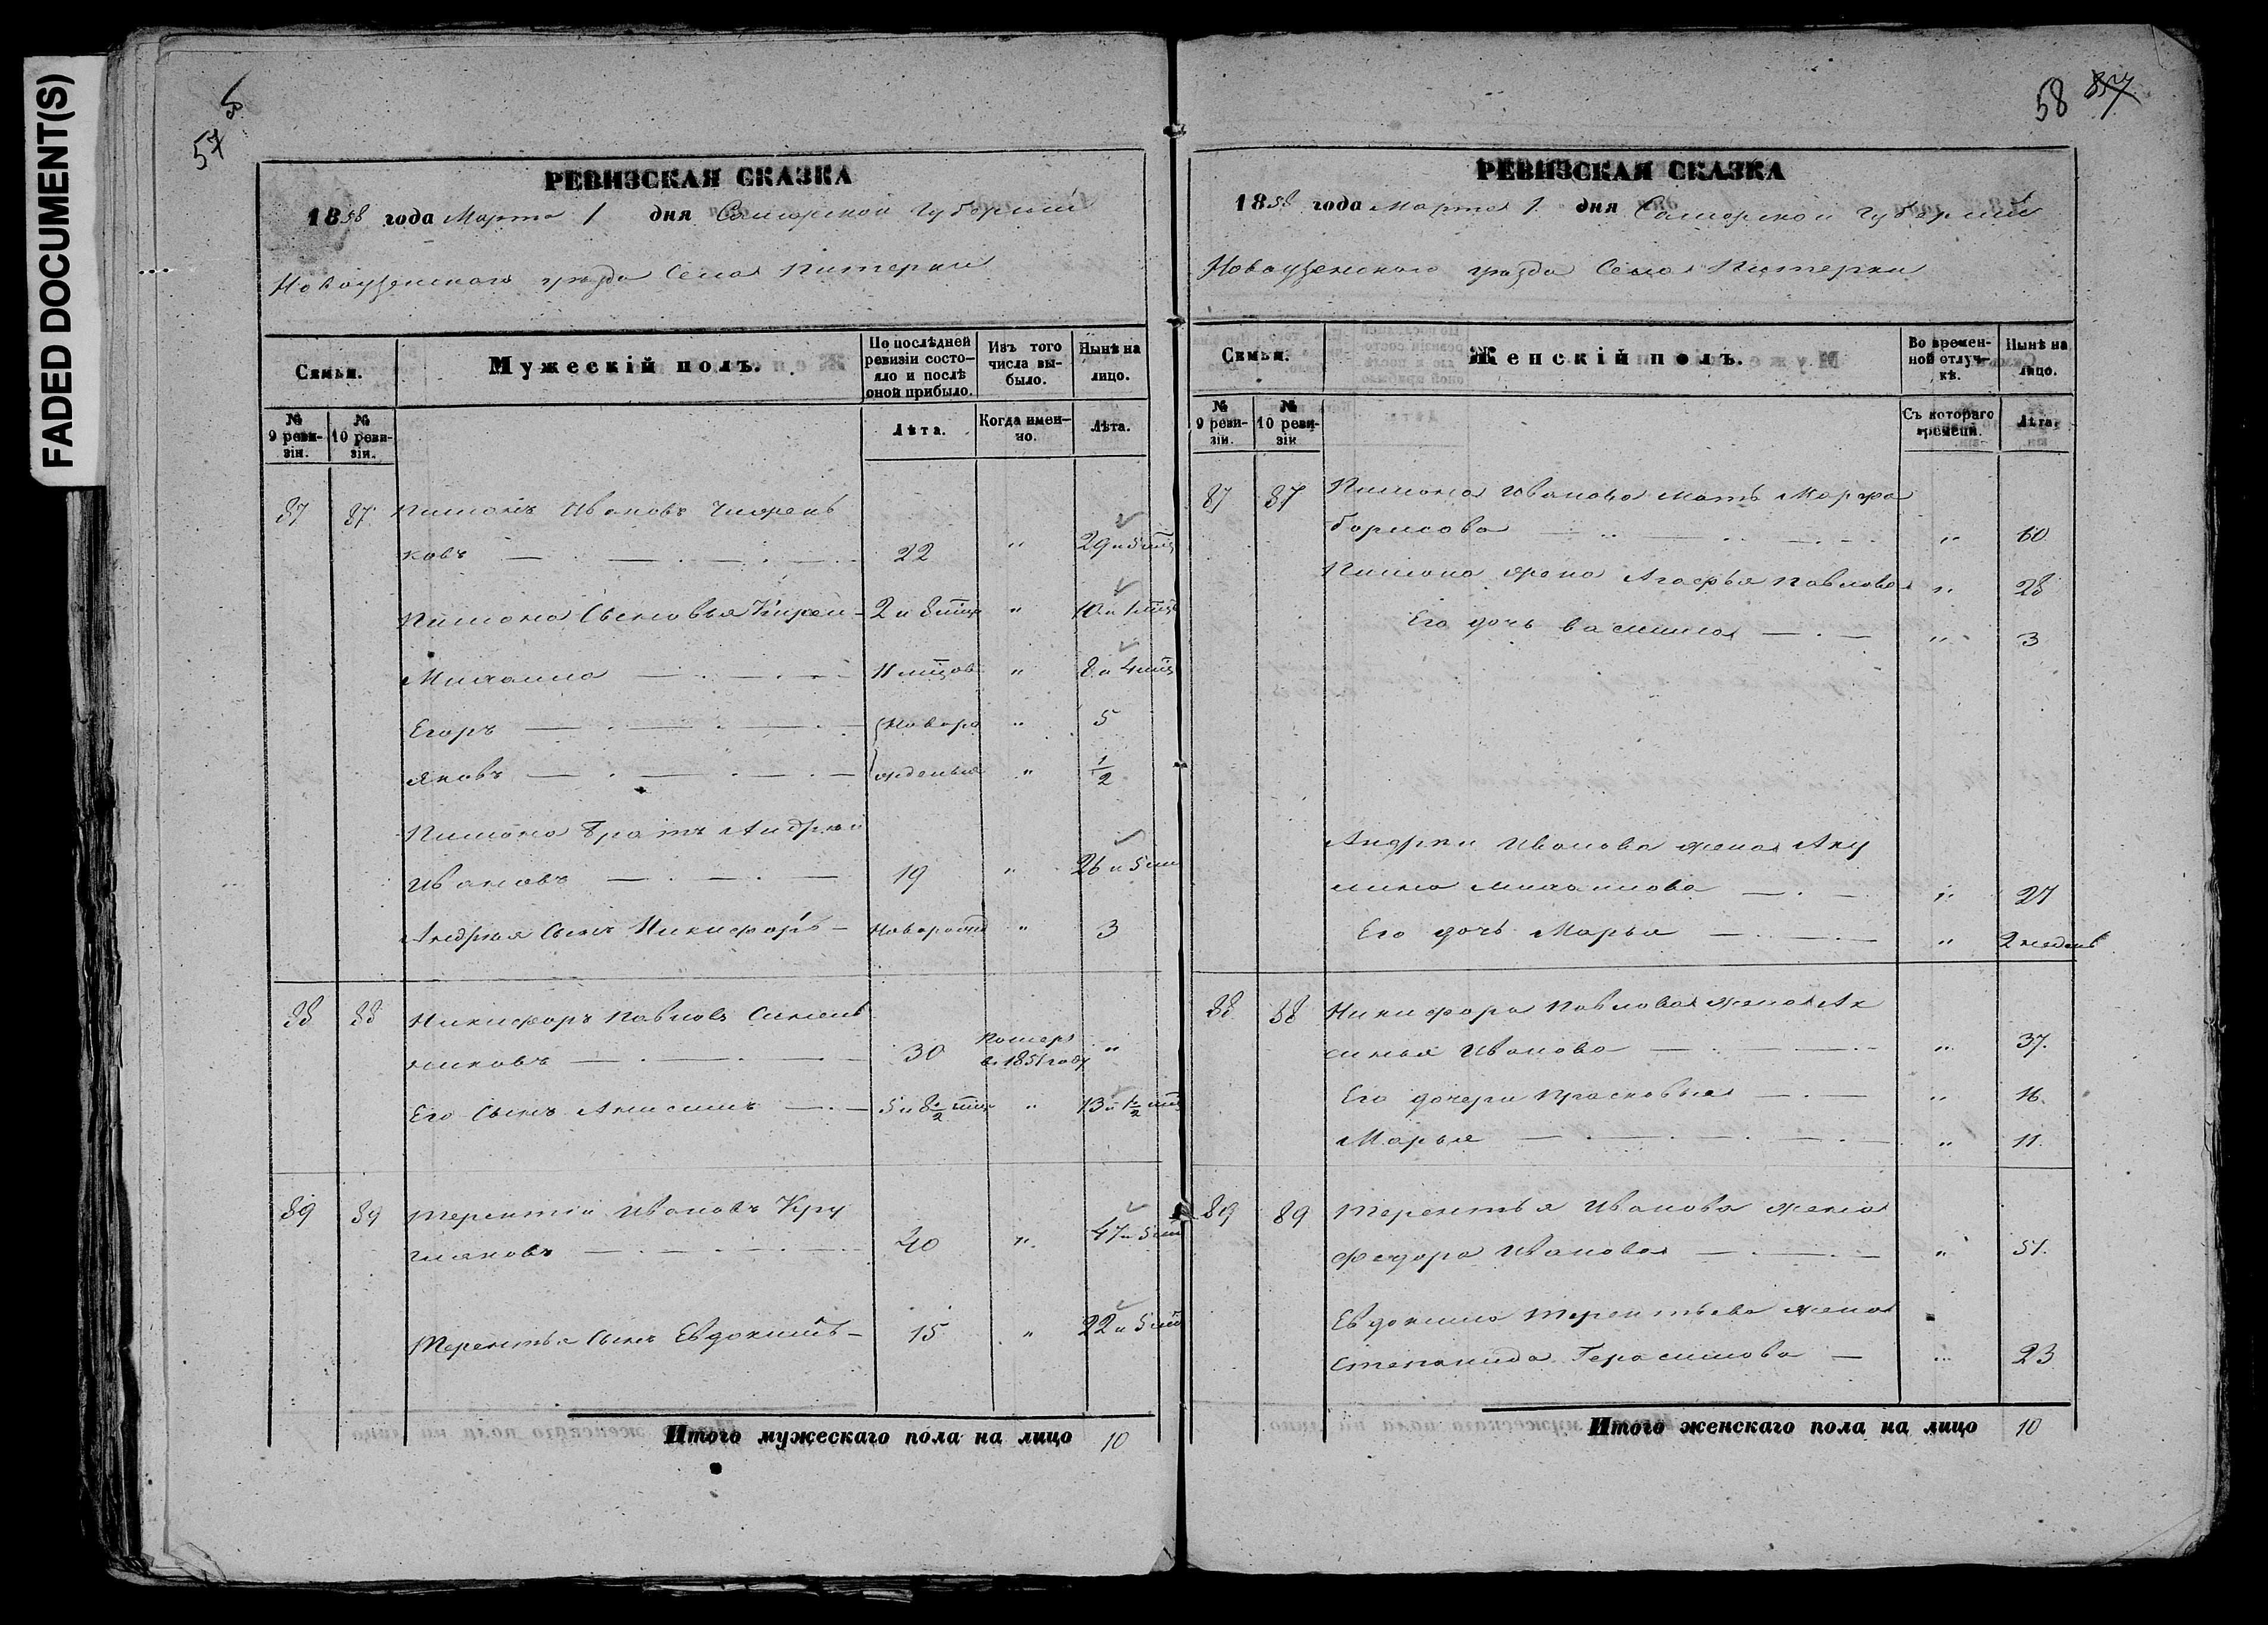 FADED DOCUMENT(S)
57
РЕВИЗСКАЯ СКАЗКА
1858 года Марта 1 дня Самарской Губернии
Новоузенского уезда Села Питерки
Семьи.
Мужескій полъ.
По послѣдней ревизіи состояло и послѣ оной прибыло.
Изъ того числа выбыло.
Нынѣ на лицо.
№ 9 ревизіи.
№ 10 ревизіи.
Лѣта.
Когда именно.
Лѣта.
87 87 Пимонъ Ивановъ
ковъ 22 " 29 и 5 мѣц
Пимона Сыновья 2 и 8 мѣц " 10 и 1 мѣц
Михаила 11 мѣцов " 8 и 4 мѣц
Егоръ (Новоро " 5
Яковъ жденыя " 1/2
Пимона Братъ Андрей
Ивановъ 19 " 26 и 5 мѣ
Андрея Сынъ Никифоръ Новорожд " 3
88 88 Никифоръ Павловъ Синель
никовъ 30 Померъ в 1851 году "
Его Сынъ Анисимъ 5 и 8 1/2 мѣц " 13 и 1/2 мѣ
89 89 Терентій Ивановъ Кру
гляковъ 40 " 47 и 5 мѣ
Терентья Сынъ Евдокимъ 15 " 22 и 5 мѣ
Итого мужескаго пола на лицо 10
58
РЕВИЗСКАЯ СКАЗКА
1858 года Марта 1 дня Самарской Губернии
Новоузенского уезда Села Питерки
Семьи.
Женскій полъ.
Во временной отлучкѣ.
Нынѣ на лицо.
№ 9 ревизіи.
№ 10 ревизіи
Съ котораго времени.
Лѣта.
87 87 Пимона Иванова мать Марфа
Борисова " 60
Пимона жена Агафья Павлова " 28
Его дочь Василиса " 3
Андрея Иванова жена Аку
лина Михаилова " 27
Его дочь Марья " 2 недель
88 88 Никифора Павлова жена Ак
синья Иванова " 37.
Его дочери Прасковья " 16.
Марья " 11.
89 89 Терентья Иванова жена
Федора Иванова " 51.
Евдокима Терентьева жена
Степанида Герасимова " 23
Итого женскаго пола на лицо 10